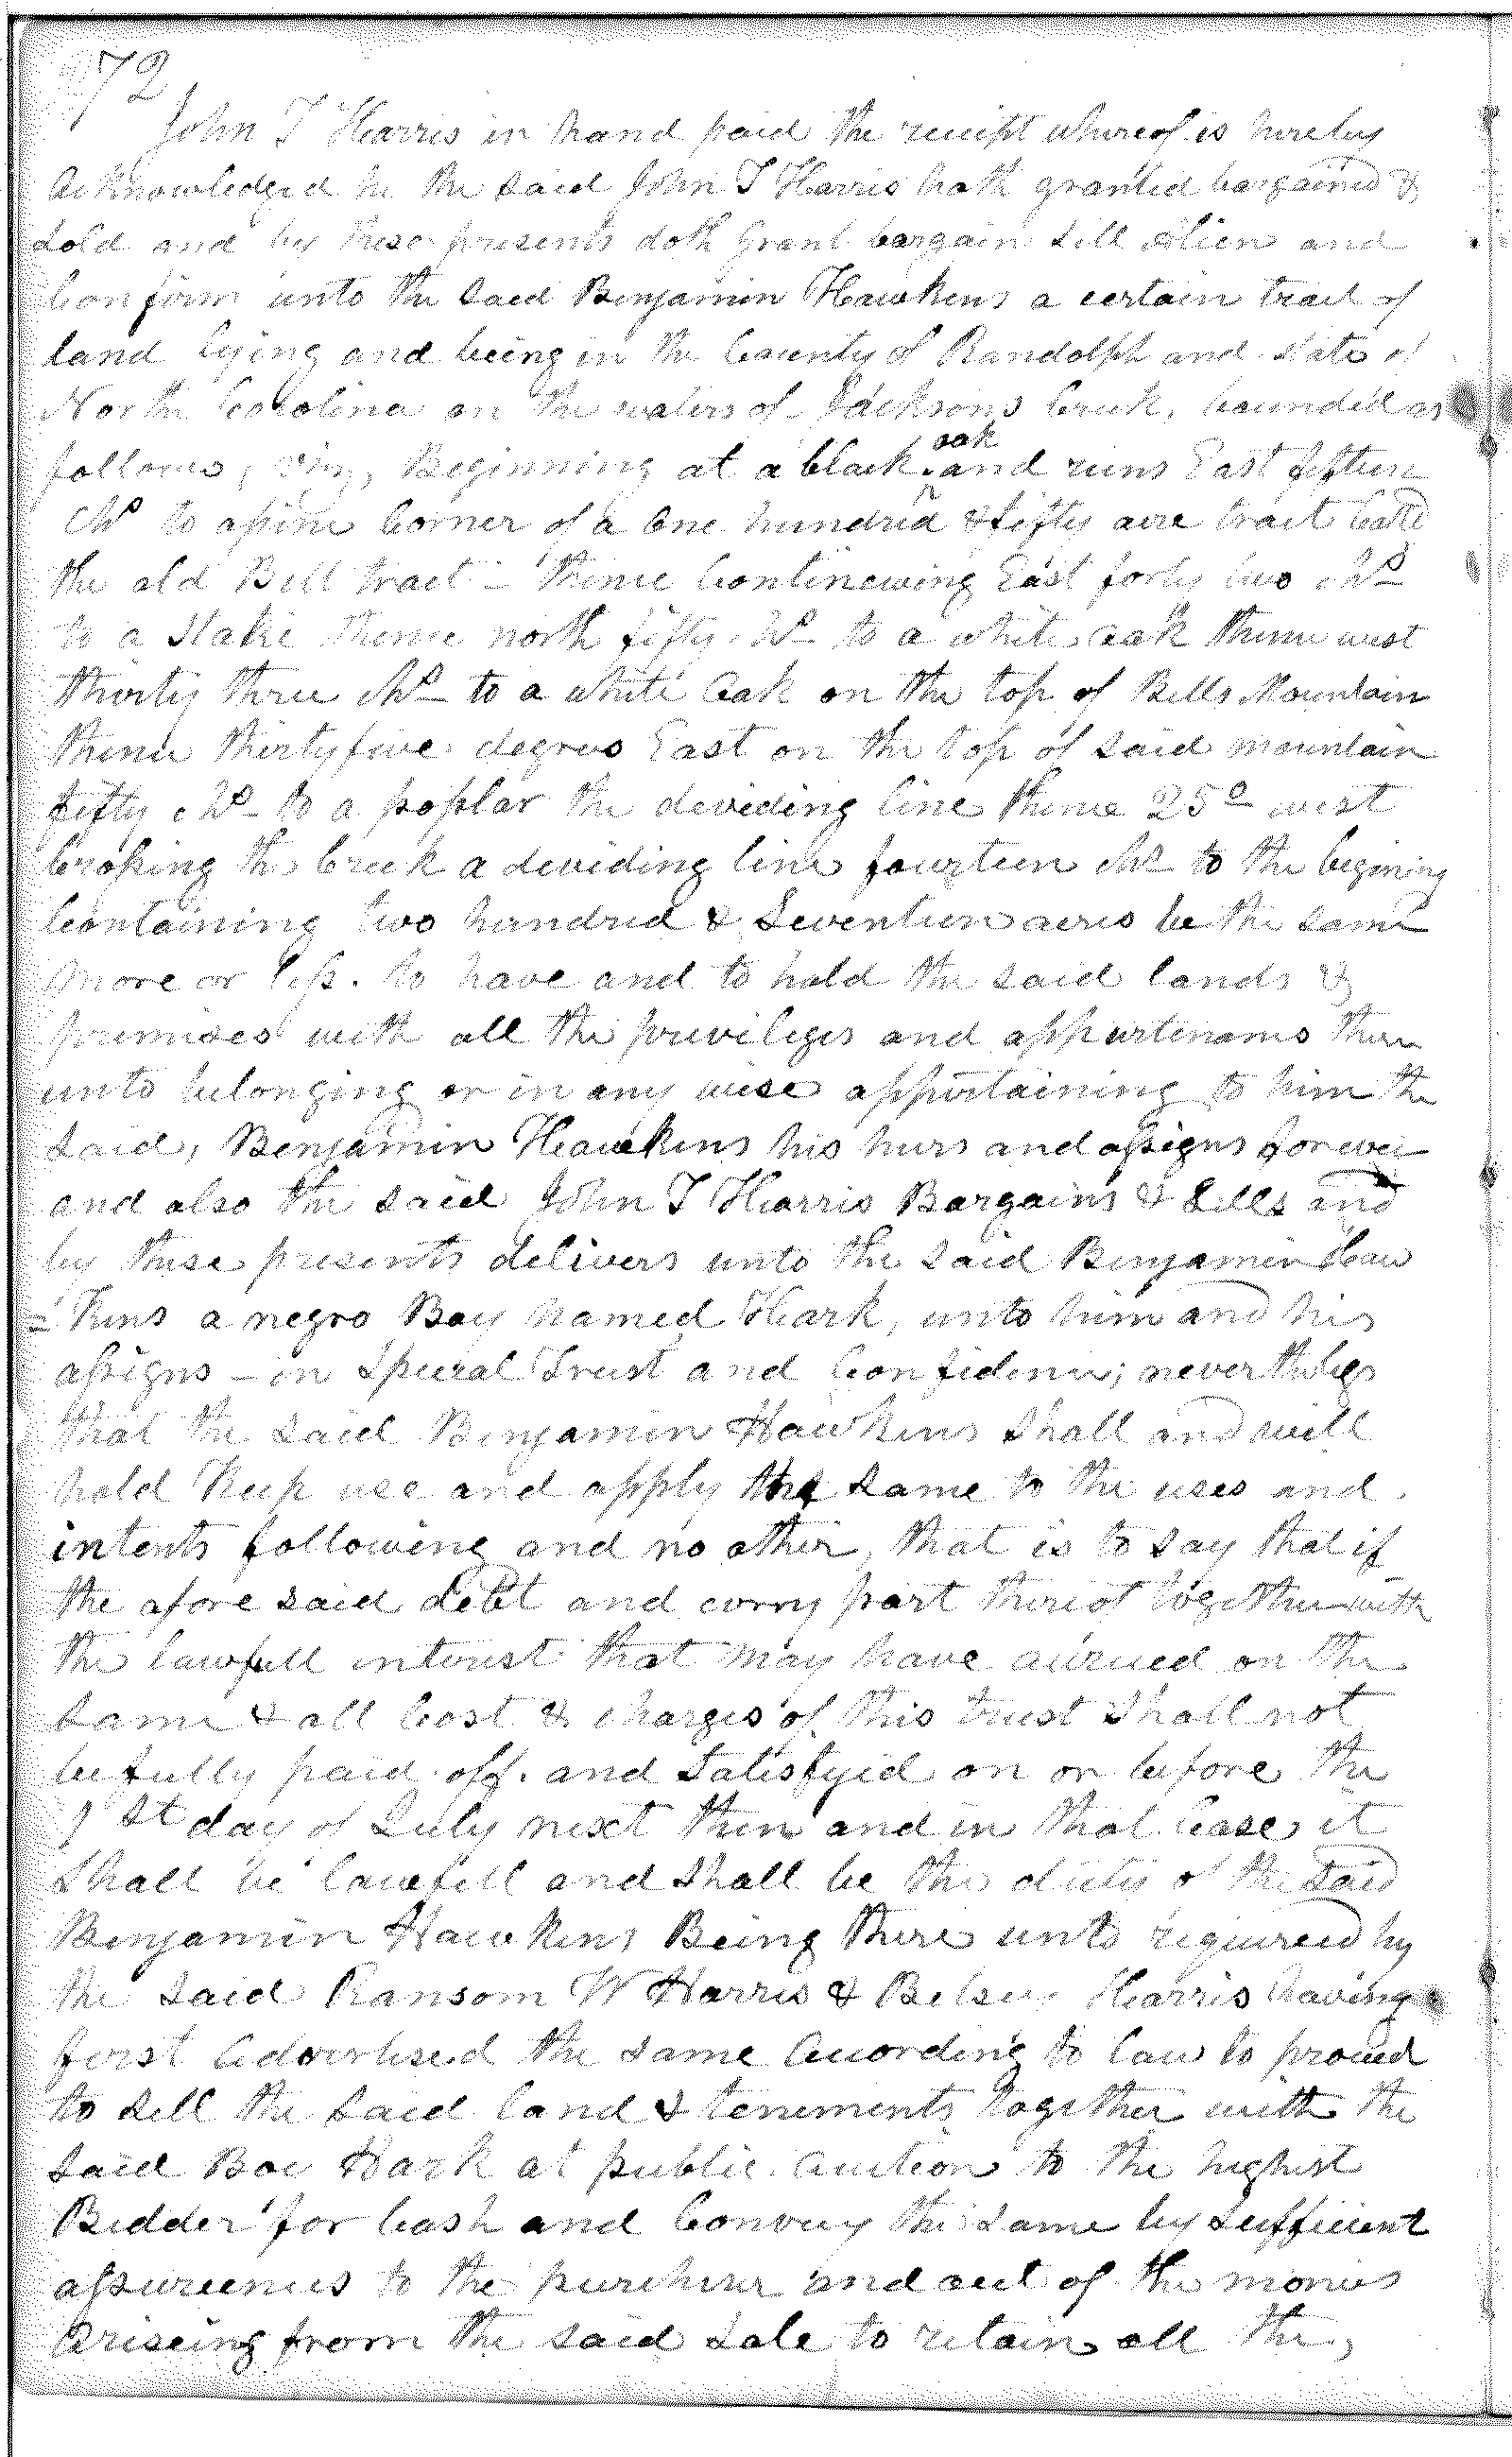 72
John T Harris in hand paid the receipt whereof is hereby
Acknowledged he the said John T Harris hath granted bargained &
Sold and by these presents doth Grant bargain Sell Alien and
Confirm unto the said Benjamin Hawkens a certain tract of
land lying and being in the County of Randolph and State of
North Carolina on the waters of Jacksons Creek, bounded as
follows, viz, Beginning at a black oak and runs East fifteen
Chs to a pine Corner of a One hundred & fifty acre tract Calld
the old Bell tract - thence Continewing East forty two Chs
to a Stake thence north fifty Chs to a white oak thence west
thirty three Chs to a white Oak on the top of Bells Mountain
thence thirty five degrees East on the top of said mountain
fifty Chs to a poplar the deviding line thence 25° west
Crossing the Creek a deviding line fourteen Chs to the begining
Containing two hundred & Seventeen acres be the same
more or less. to have and to hold the said lands &
premises with all the privileges and appurtenances there
unto belonging or in any wise appertaining to him the
said, Benjamin Hawkins his heirs and assigns forever
and also the said John T Harris Bargains & Sells and
by these presents delivers unto the said Benjamin Haw
= kins a negro Boy named Hark, unto him and his
assigns - in Special Trust and Confidence; never theless
that the said Benjamin Hawkins Shall and will
hold Keep use and apply the same to the uses and
intents following and no other, that is to say that if
the afore said debt and evrry part thereof together with
the lawfull interest that may have accrued on the
same & all Cost & charges of this trust Shall not
be fully paid off. and Satisfyid on or before the
1st day of July next then and in that Case it
Shall be lawfull and Shall be the duty of the said
Benjamin Hawkins Being there unto required by
the said Ransom W Harris & Betsey Harris having
first Advertised the same According to law to proceed
to sell the said land & tenements together with the
said Boy Hark at public Auction to the highest
Bidder for Cash and Convey the same by sufficient
assureences to the purchser and out of the monies
Ariseing from the said Sale to retain all the,